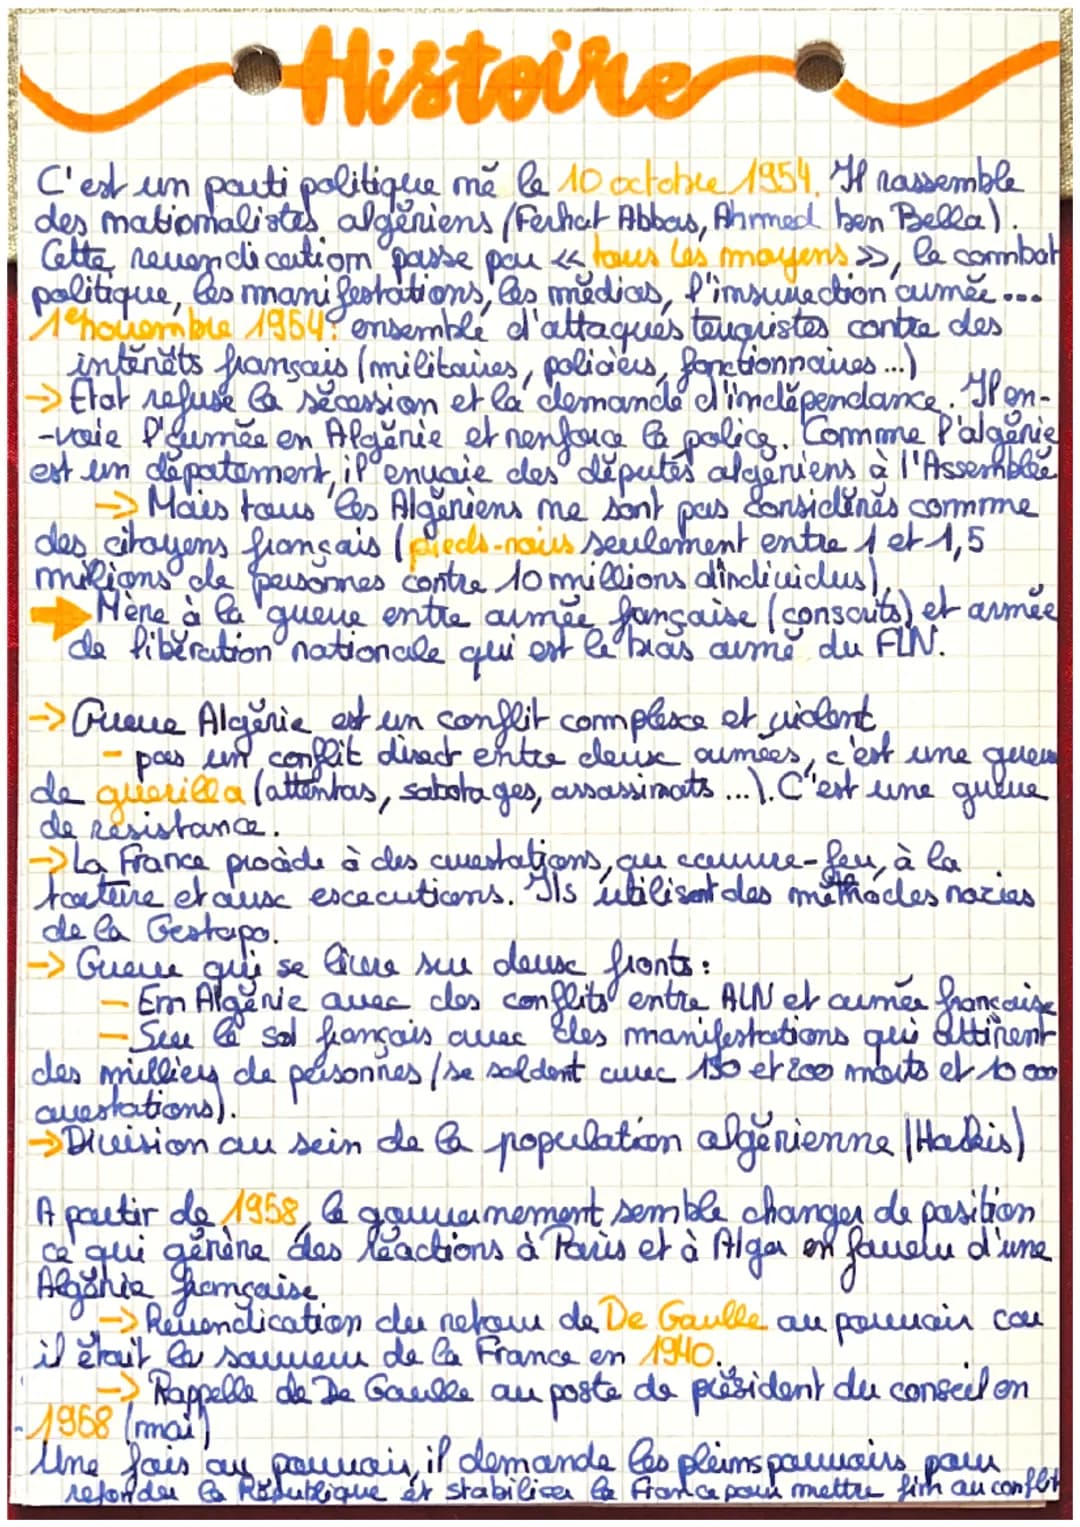 Histoire
C'est un parti politique né le 10 octobre 1954. Il rassemble
des nationalistes algériens (Ferhat Abbas, Ahmed ben Bella).
Cette revendication passe par << tous les moyens >>, le combat
politique, les manifestations, les médias, l'insurrection armée...
1er novembre 1954: ensemble d'attaques terroristes contre des
intérêts français (militaires, policiers, fonctionnaires...)
→ Etat refuse la sécession et la demande d'indépendance. Il en-
-voie l'armée en Algérie et renforce la police. Comme l'algérie
est un département, il envoie des députés algériens à l'Assemblée
→ Mais tous les Algériens ne sont pas considérés comme
des citoyens français (pieds-noirs seulement entre 1 et 1,5
millions de personnes contre 10 millions d'individus).
→ Mène à la guerre entre armée française (conscrits) et armée
de libération nationale qui est le bras armé du FLN.
→ Guerre Algérie est un conflit complexe et violent
- pas un conflit direct entre deux armées, c'est une guerre
de guerilla (attentas, sabotages, assassinats...). C'est une guerre
de résistance.
→ La France procède à des arrestations, au couvre-feu, à la
torture et aux excecutions. Ils utilisent des méthodes nazies
de la Gestapo.
→ Guerre qui se livre sur deux fronts:
- En Algérie avec des conflits entre ALN et armée française
- Sur le sol français avec des manifestations qui attirent
des milliers de personnes (se soldent avec 150 et 200 morts et 10 000
arrestations).
→ Division au sein de la population algérienne (Harkis)
A partir de 1958, le gouvernement semble changer de position
ce qui génère des réactions à Paris et à Alger en faveur d'une
Algérie française
→ Revendication du retour de De Gaulle au pouvoir car
il était le sauveur de la France en 1940.
→ Rappelle de De Gaulle au poste de président du conseil en
-1968 (mai)
Une fois au pouvoir, il demande les pleins pouvoirs pour
refonder la République et stabiliser la France pour mettre fin au conflit